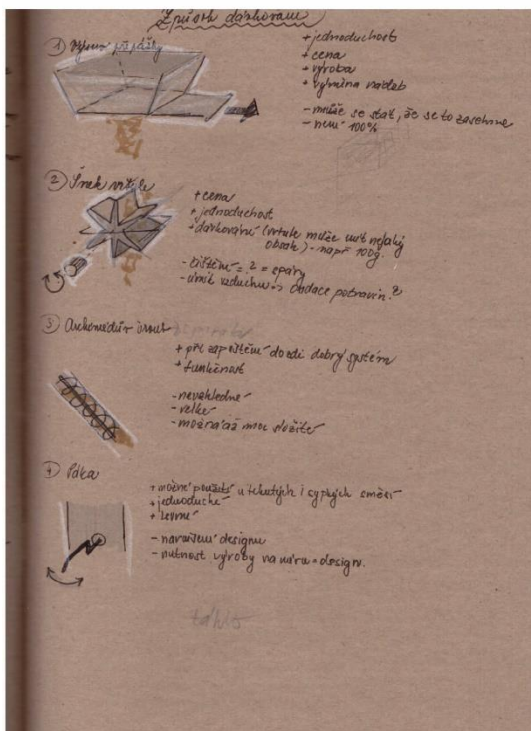 Způsob dávkování
① Výsuv přepážky
+ jednoduchost
+ cena
+ výroba
+ výměna nádob
- může se stát, že se to zasekne
- není 100%
② Šnek vrtule
+ cena
+ jednoduchost
+ dávkování (vrtule může mít nějaký
obsah) - např 100g.
- čištění = ? = spáry
- únik vzduchu => oxidace potravin?
③ Archimédův šroub
+ při zapuštění docela dobrý systém
+ funkčnost
- nevzhledné
- velké
- možná až moc složité
④ Páka
+ možné použití u tekutých i sypkých směsí
+ jednoduché
+ levné
- narušení designu
- nutnost výroby na míru = design.
táhlo